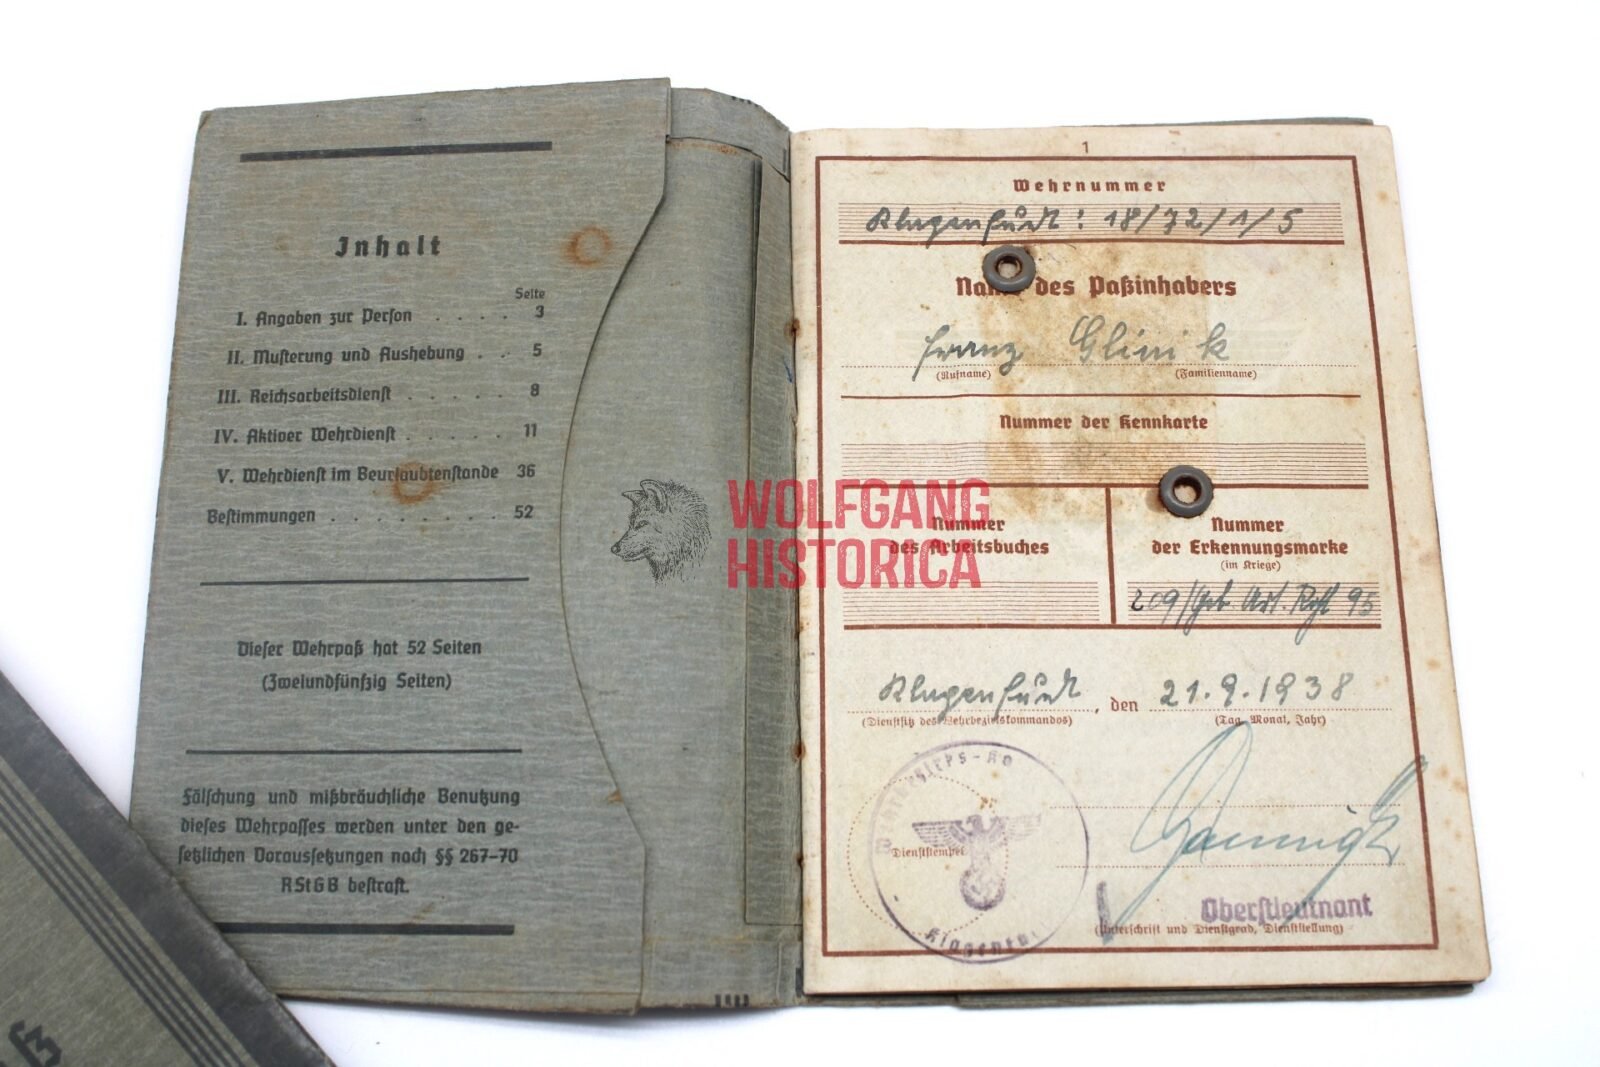 Inhalt
Seite
I. Angaben zur Person . . . . . 3
II. Musterung und Aushebung . . 5
III. Reichsarbeitsdienst . . . . . . 8
IV. Aktiver Wehrdienst . . . . . . 11
V. Wehrdienst im Beurlaubtenstande 36
Bestimmungen . . . . . . . . . 52
Dieser Wehrpaß hat 52 Seiten
(Zweiundfünfzig Seiten)
Fälschung und mißbräuchliche Benutzung
dieses Wehrpasses werden unter den ge-
setzlichen Voraussetzungen nach §§ 267–70
RStGB bestraft.
WOLFGANG
HISTORICA
1
Wehrnummer
Klagenfurt: 18/72/1/5
Name des Paßinhabers
Franz Glinik
(Rufname) (Familienname)
Nummer der Kennkarte
Nummer
des Arbeitsbuches
Nummer
der Erkennungsmarke
(im Kriege)
209/Geb. Art. Rgt 95
Klagenfurt, den 21.9.1938
(Dienstsitz des Wehrbezirkskommandos) (Tag, Monat, Jahr)
Dienststempel
Klagenfu
Oberstleutnant
(Unterschrift und Dienstgrad, Dienststellung)